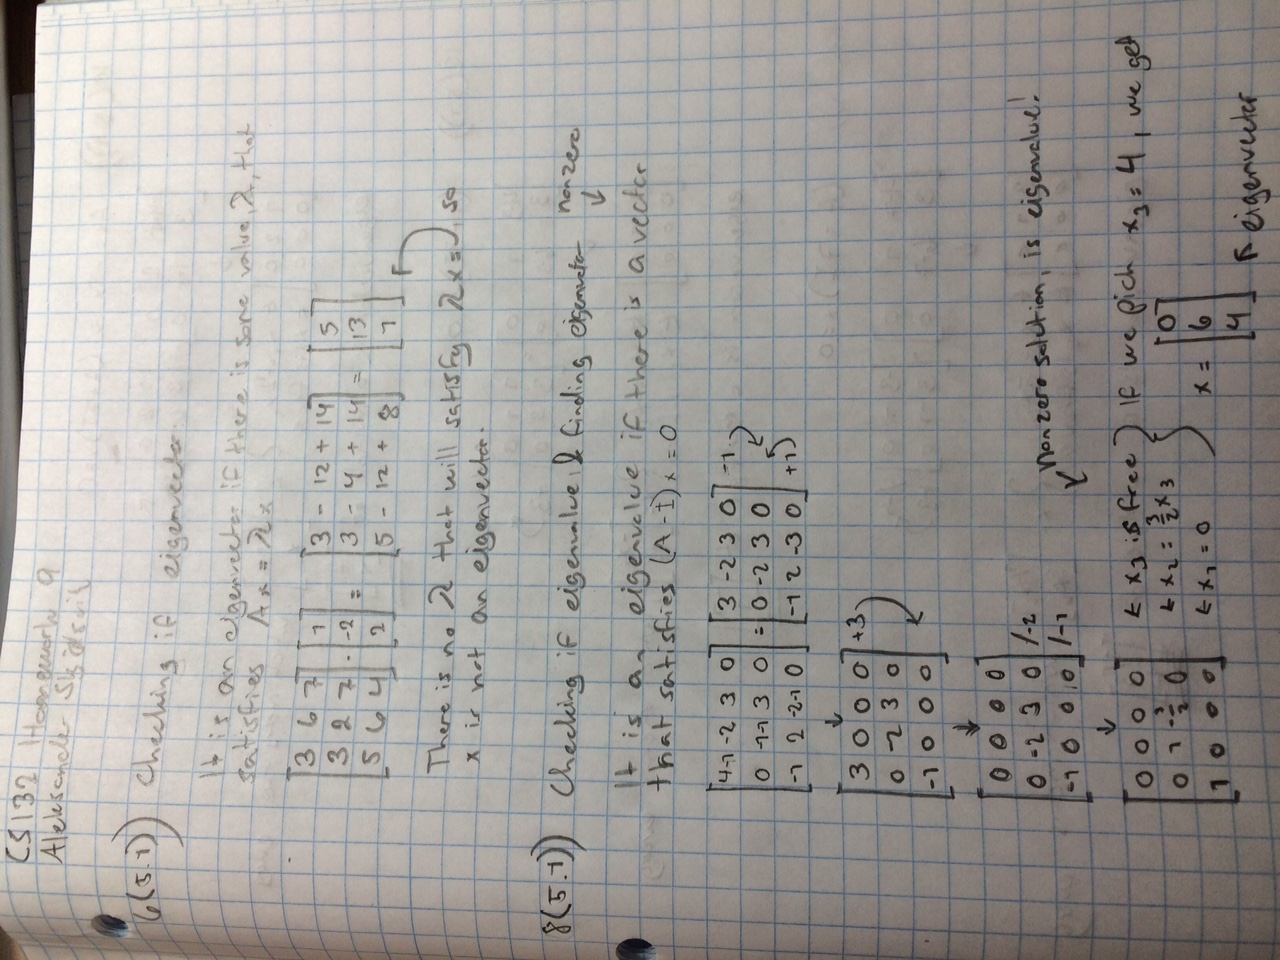 CS132 Homework 9
Aleksander
6(5.1)) Checking if eigenvector.
It is an eigenvector if there is some value, λ, that
satisfies Ax = λx
[3 6 7; 3 2 7; 5 6 4] · [1; -2; 2] = [3 - 12 + 14; 3 - 4 + 14; 5 - 12 + 8] = [5; 13; 1]
There is no λ that will satisfy λx = , so
x is not an eigenvector.
8(5.1)) Checking if eigenvalue, & finding eigenvector nonzero
It is an eigenvalue if there is a vector
that satisfies (A-I)x = 0
[4-1 -2 3 0; 0 -1-1 3 0; -1 2 -2-1 0] = [3 -2 3 0; 0 -2 3 0; -1 2 -3 0] -1 +1
[3 0 0 0; 0 -2 3 0; -1 0 0 0] +3
[0 0 0 0; 0 -2 3 0; -1 0 0 0] /-2 /-1
nonzero solution, is eigenvalue!
[0 0 0 0; 0 1 -3/2 0; 1 0 0 0]
← x3 is free
← x2 = 3/2 x3
← x1 = 0
If we pick x3 = 4, we get
x = [0; 6; 4]
eigenvector